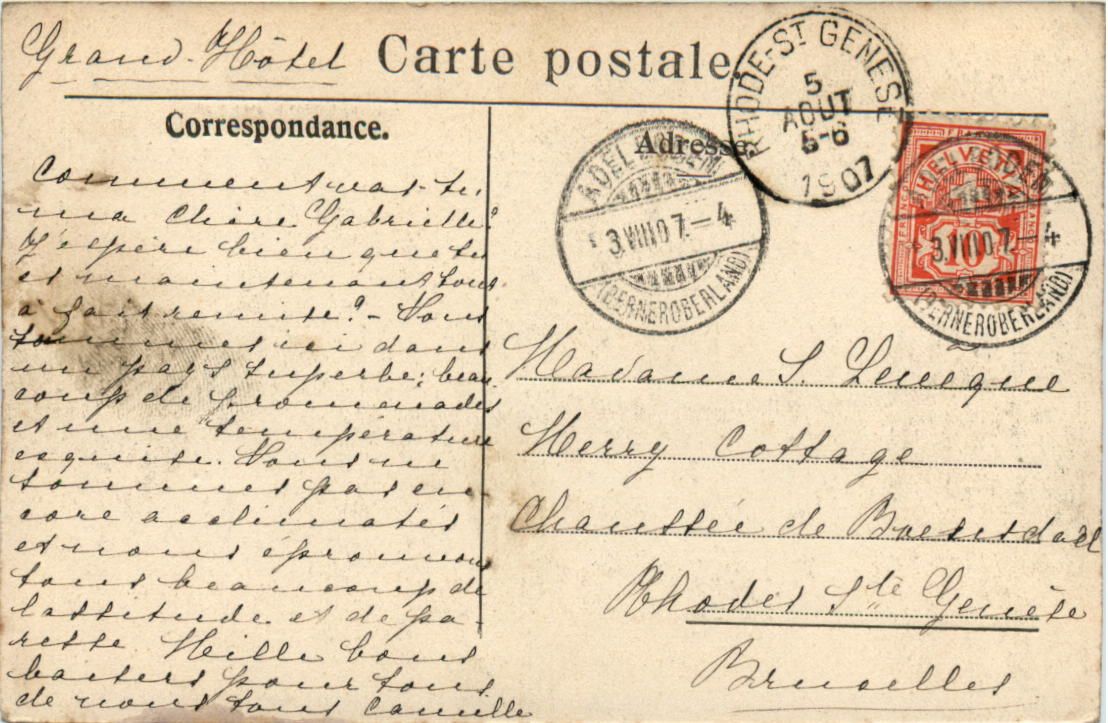 Grand-Hôtel Carte postale
Correspondance.
Adresse
RHODE-ST GENESE
5
AOUT
5-6
1907
ADELBODEN
3.VIII.07.-4
(BERNEROBERLAND)
HELVETIA
FRANCO
10
ADELBODEN
3.VIII.07.-4
(BERNEROBERLAND)
Comment vas-tu
ma Chère Gabrielle?
J'espère bien que tu
es maintenant tout
à fait remise? - Nous
sommes ici dans
un pays superbe; beau-
coup de promenades
et une température
exquise. Nous ne
sommes pas en-
core acclimatés
et nous éprouvons
tous beaucoup de
lassitude et de pa-
resse Mille bons
baisers pour tous
de nous tous Camille
Madame S. Levêque
Merry Cottage
Chaussée de Boesdael
Rhodes Ste Genèse
Bruxelles